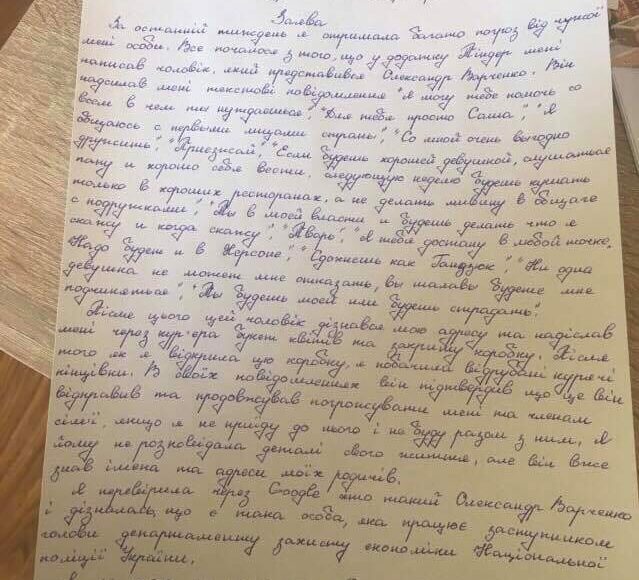 Заява
За останній тиждень я отримала багато погроз від чужої
мені особи. Все почалося з того, що у додатку Тіндер мені
написав чоловік, який представився Олександр Варченко. Він
надсилав мені текстові повідомлення "Я могу тебе помочь со
всем в чем ты нуждаешься", "Для тебя просто Саша", "Я
общаюсь с первыми лицами страны", "Со мной очень выгодно
дружить", "Приезжай", "Если будешь хорошей девушкой, слушаться
папу и хорошо себя вести, следующую неделю будешь кушать
только в хороших ресторанах, а не делать мивину в общаге
с подружками", "Ты в моей власти и будешь делать что я
скажу и когда скажу", "Тварь", "Я тебя достану в любой точке.
Надо будет и в Херсоне", "Сдохнешь как Гандзюк", "Ни одна
девушка не может мне отказать, вы шалавы будете мне
подчиняться", "Ты будешь моей или будешь страдать".
Після цього цей чоловік дізнався мою адресу та надіслав
мені через кур'єра букет квітів та закриту коробку. Після
того як я відкрила цю коробку, я побачила відрубані курячі
кінцівки. В своїх повідомленнях він підтвердив що це він
відправив та продовжував погрожувати мені та членам
сім'ї, якщо я не приїду до нього і не буду разом з ним. Я
йому не розповідала деталі свого життя, але він вже
знав імена та адреси моїх родичів.
Я перевірила через Google хто такий Олександр Варченко
і дізналась, що є така особа, яка працює заступником
голови департаменту захисту економіки Національної
поліції України.